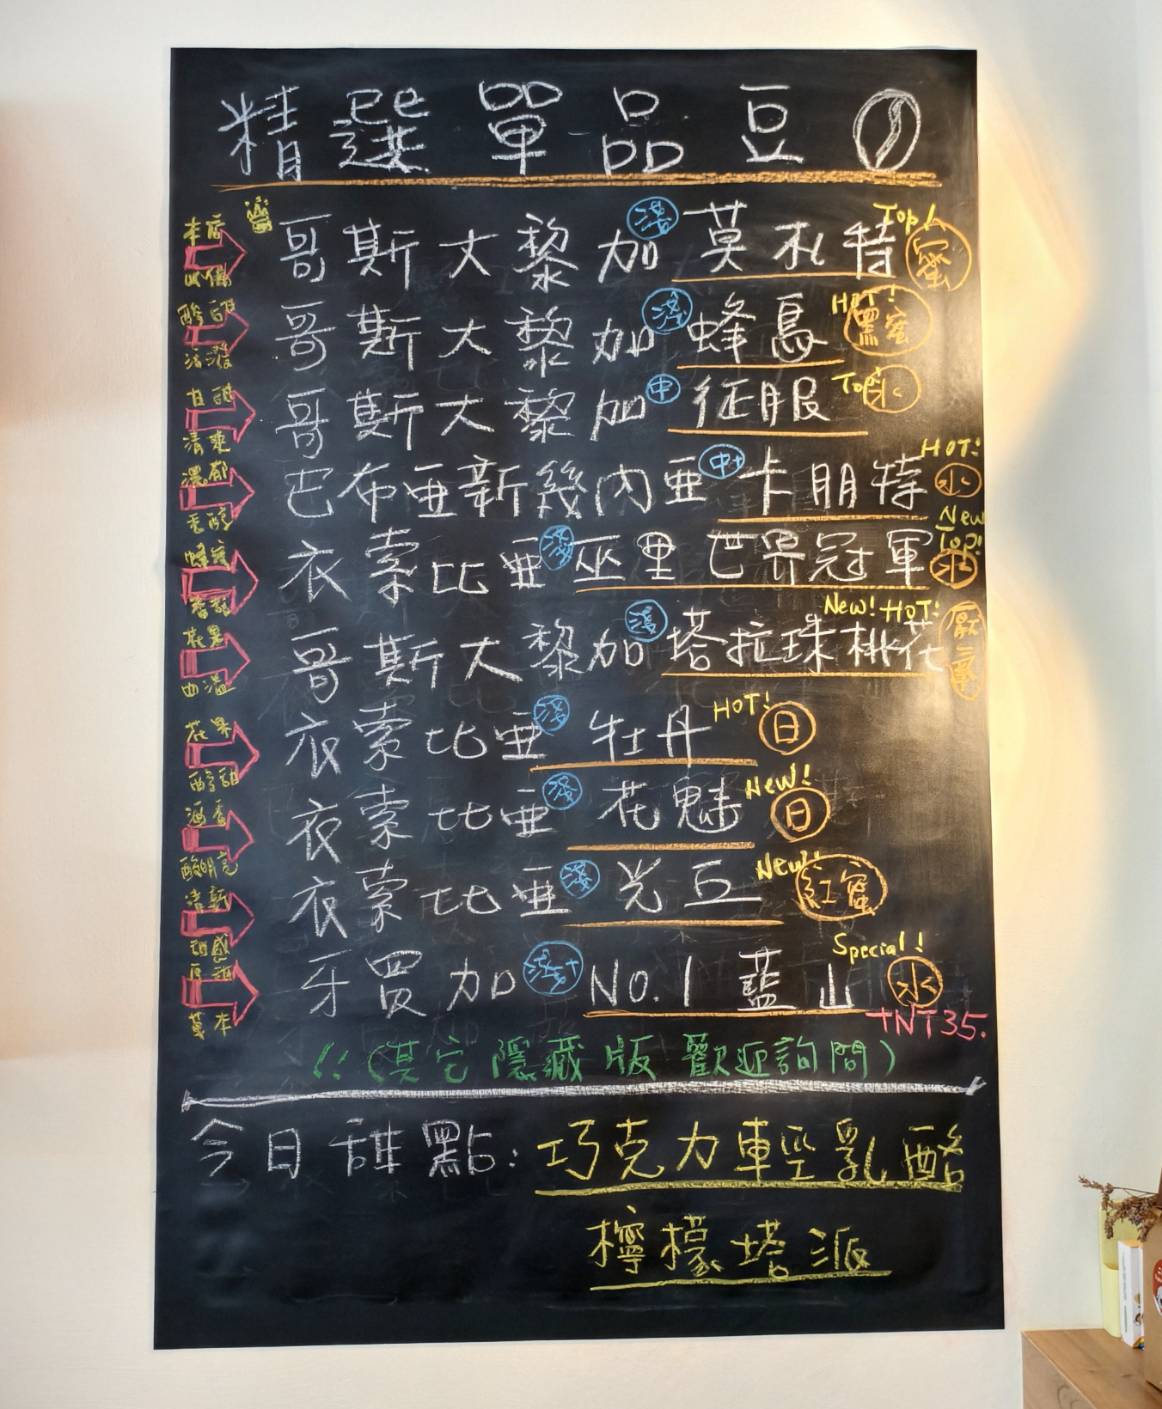 精選單品豆
本店 哥斯大黎加 淺 莫札特 Top! 蜜
哥斯大黎加 淺 蜂鳥 HOT! 黑蜜
甘甜 清爽 哥斯大黎加 中 征服 Top! 水
濃郁 香醇 巴布亜新幾內亜 中+ 卡朋特 HOT! 水
衣索比亜 淺 巫里 世界冠軍 New Top! 水
花果 哥斯大黎加 淺 塔拉珠桃花 New! HOT! 厭氧
花果 酸甜 衣索比亜 淺 牡丹 HOT! 日
酸明亮 衣索比亜 淺 花魁 New! 日
清新 甜感 衣索比亜 淺 光丘 New! 紅蜜
牙買加 淺+ NO.1 藍山 Special! 水
+NT35.
!! (其它隱藏版歡迎詢問)
今日甜點: 巧克力輕乳酪
檸檬塔派